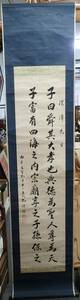 子曰舜其大孝也與德為聖人尊為天
子富有四海之內宗廟享之子孫保之